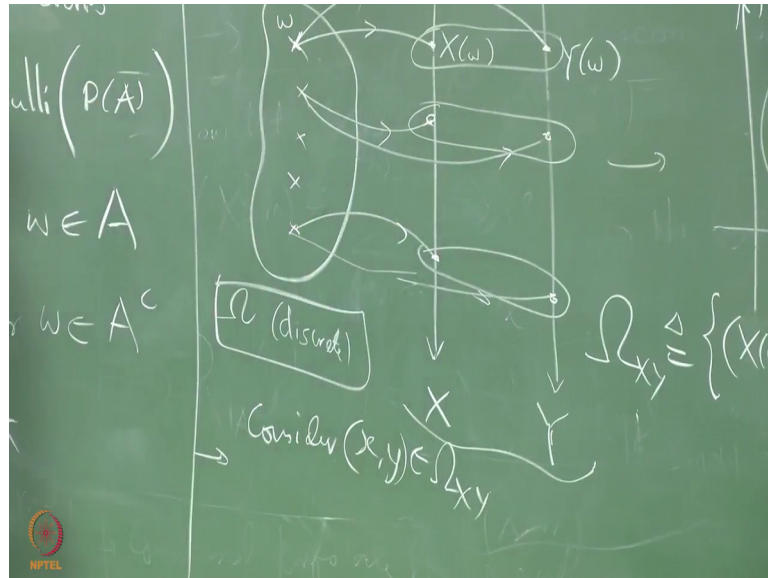 ulli (P(A))
w ∈ A
w ∈ A^c
w
X(w)
Y(w)
Ω (discrete)
X
Y
Ω_XY ≜ {(X(
→ Consider (x,y) ∈ Ω_XY
NPTEL